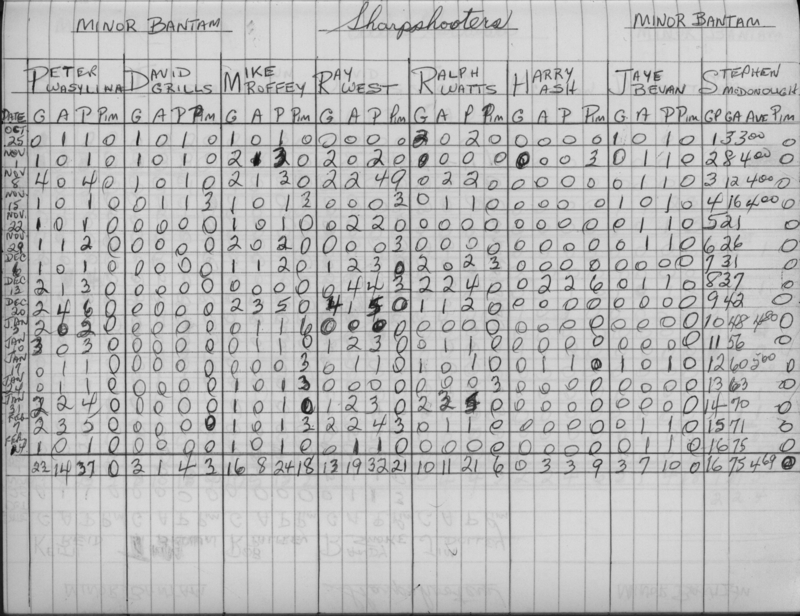 MINOR BANTAM Sharpshooters MINOR BANTAM
PETER WASYLINA DAVID GRILLS MIKE ROFFEY RAY WEST RALPH WATTS HARRY ASH JAYE BEVAN STEPHEN McDONOUGH
DATE G A P Pim G A P Pim G A P Pim G A P Pim G A P Pim G A P Pim G A P Pim GP GA AVE Pim
OCT 25 0 1 1 0 1 0 1 0 1 0 1 0 0 0 0 0 2 0 2 0 0 0 0 0 1 0 1 0 1 3 300 0
NOV 1 0 1 0 1 0 1 0 2 1 3 0 2 0 2 0 0 0 0 0 0 0 0 3 0 1 1 0 2 8 400 0
NOV 8 4 0 4 0 1 0 1 0 2 1 3 0 2 2 4 9 0 2 2 0 0 0 0 0 0 1 1 0 3 12 400 0
NOV 15 1 0 1 0 0 1 1 3 1 0 1 3 0 0 0 3 0 1 1 0 0 0 0 0 1 0 1 0 4 16 400 0
NOV 22 1 0 1 0 0 0 0 0 1 0 1 0 0 2 2 0 0 0 0 0 0 0 0 0 0 1 1 0 5 21 0
NOV 29 1 1 2 0 0 0 0 0 2 0 2 0 0 0 0 3 0 0 0 0 0 0 0 0 0 1 1 0 6 26 0
DEC 6 1 0 1 0 0 0 0 0 1 1 2 0 1 2 3 0 2 0 2 3 0 0 0 0 0 0 0 0 7 31 0
DEC 13 2 1 3 0 0 0 0 0 0 0 0 0 0 4 4 3 2 2 4 0 0 2 2 6 0 1 1 0 8 37 0
DEC 20 2 4 6 0 0 0 0 0 2 3 5 0 4 1 5 0 1 1 2 0 0 0 0 0 0 0 0 0 9 42 0
JAN 2 0 2 0 0 0 0 0 0 1 1 6 0 0 0 0 0 0 0 0 0 0 0 0 0 0 0 0 10 48 480 0
JAN 10 3 0 3 0 0 0 0 0 0 0 0 0 1 2 3 0 0 1 1 0 0 0 0 0 0 0 0 0 11 56 0
JAN 17 0 1 1 0 0 0 0 0 0 0 0 3 0 1 1 0 1 0 1 0 0 1 1 0 1 0 1 0 12 60 500 0
JAN 24 0 1 1 0 0 0 0 0 1 0 1 3 0 0 0 0 0 0 0 3 0 0 0 0 0 0 0 0 13 63 0
JAN 31 2 2 4 0 0 0 0 0 1 0 1 0 1 2 3 0 2 3 5 0 0 0 0 0 0 0 0 0 14 70 0
FEB 7 2 3 5 0 0 0 0 0 1 0 1 3 2 2 4 3 0 1 1 0 0 0 0 0 0 1 1 0 15 71 0
FEB 14 1 0 1 0 0 0 0 0 1 0 1 0 0 1 1 0 0 0 0 0 0 0 0 0 0 1 1 0 16 75 0
23 14 37 0 3 1 4 3 16 8 24 18 13 19 32 21 10 11 21 6 0 3 3 9 3 7 10 0 16 75 469 0